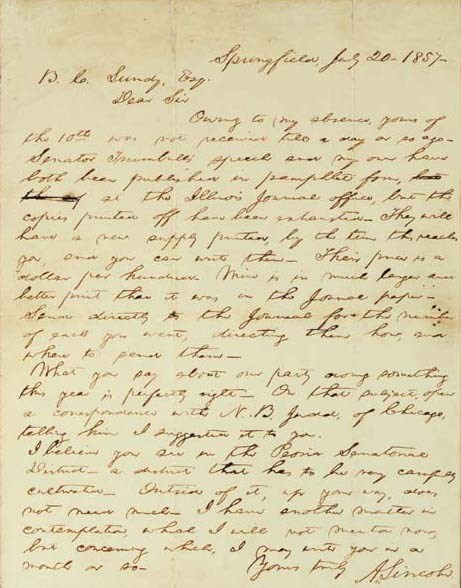 Springfield, July 20- 1857-
B. C. Lundy, Esq.
Dear Sir
Owing to my absence, yours of
the 10th was not received till a day or so ago-
Senator Trumbull's speech and my own have
both been published in pamphlet form,
at the Illinois Journal office, but the
copies printed off have been exhausted- They will
have a new supply printed, by the time this reaches
you, and you can write them- Their price is a
dollar per hundred Mine is in much larger and
better print than it was in the Journal paper-
Send directly to the Journal for the number
of each you want, directing them how, and
where to send them-
What you say about our party doing something
this year is perfectly right- On that subject, open
a correspondence with N. B. Judd, of Chicago,
telling him I suggested it to you.
I believe you are in the Peoria Senatorial
District- a district that has to be very carefully
cultivated- Outside of it, up your way, does
not need much- I have another matter in
contemplation, which I will not mention now,
but concerning which, I may write you in a
month or so- Yours truly A. Lincoln